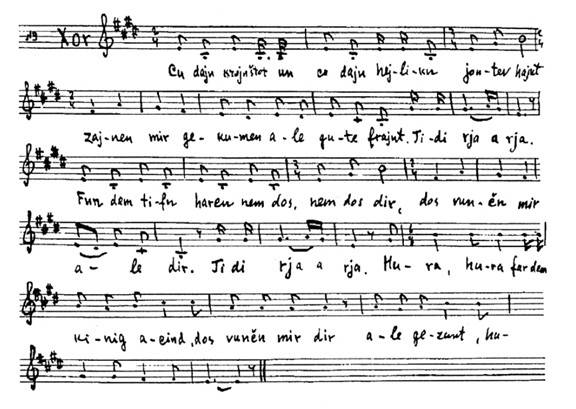 19 Xor
Cu dajn krojnštot un co dajn hej-li-kn jon-tev hajnt
zaj-nen mir ge-ku-men a-le gu-te frajnt. Ti-di rja a rja.
Fun dem ti-fn harcn nem dos, nem dos dir, dos vun-ěn mir
a-le dir. Ti di rja a rja. Hu-ra, hu-ra far dem
ki-nig a-cind, dos vuněn mir dir a-le ge-zunt, hu-